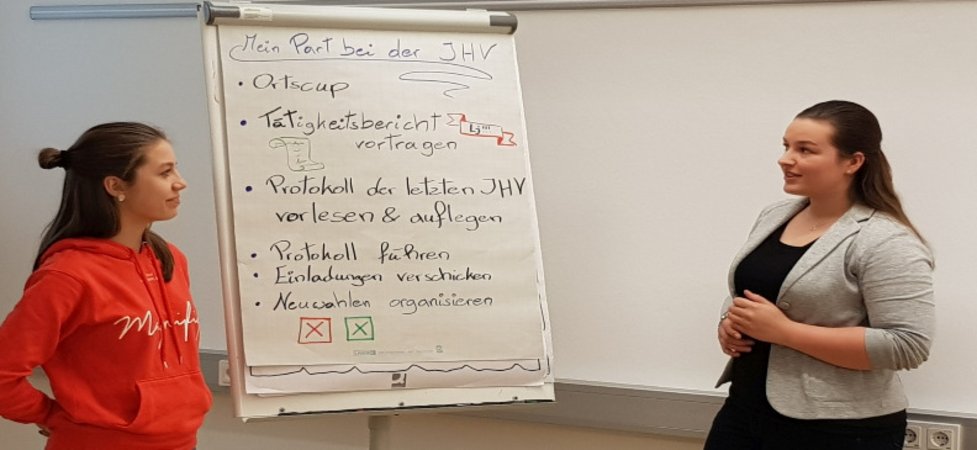 Mein Part bei der JHV
• Ortscup
• Tätigkeitsbericht
vortragen
• Protokoll der letzten JHV
vorlesen & auflegen
• Protokoll führen
• Einladungen verschicken
• Neuwahlen organisieren